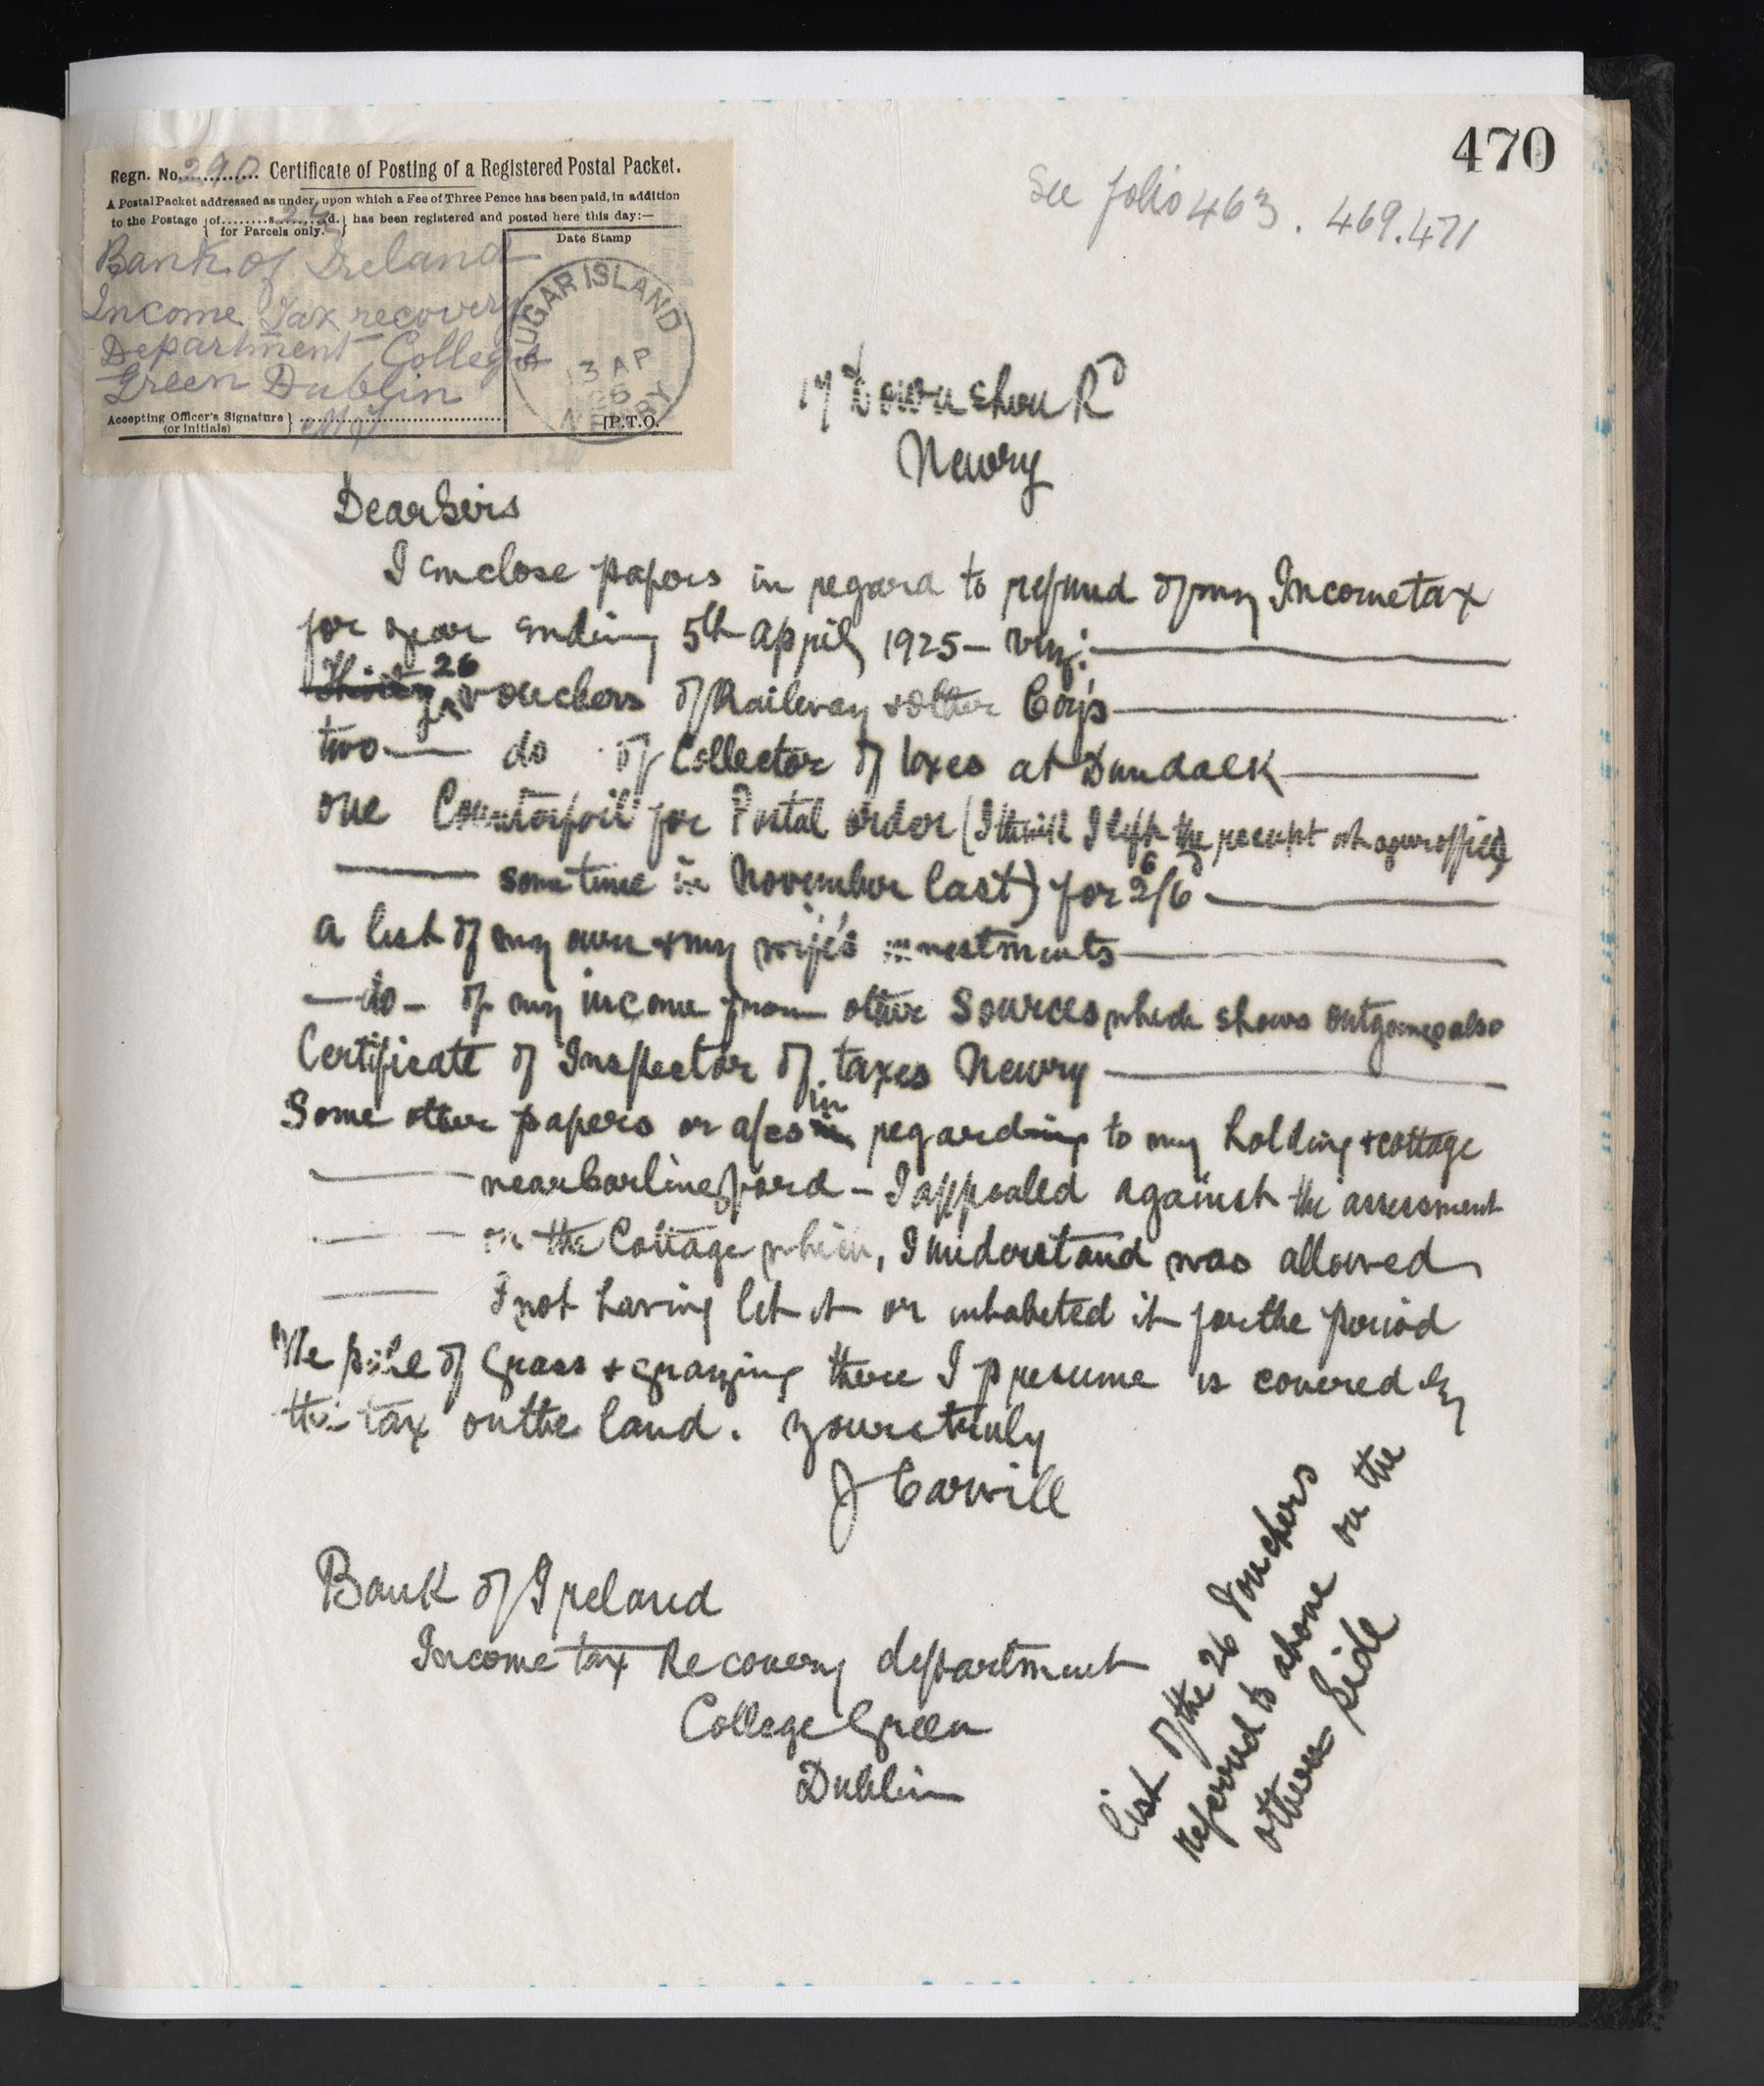 470
See folio 463. 469.471
Regn. No. 290 Certificate of Posting of a Registered Postal Packet.
A Postal Packet addressed as under, upon which a Fee of Three Pence has been paid, in addition
to the Postage {of........s....d.} has been registered and posted here this day:—
for Parcels only.
Date Stamp
Bank of Ireland
Income Tax recovery
Department College
Green Dublin
SUGAR ISLAND
13 AP
26
NEWRY
Accepting Officer's Signature }
(or initials)
[P.T.O.
17 Downshire Rd
Newry
Dear Sirs
I enclose papers in regard to refund of my Income tax
for year ending 5th April 1925 — viz:
Thirty 26 vouchers of Railway & other Coy's
two — do of Collector of taxes at Dundalk
one Counterfoil for Postal order (I think I left the receipt at your office
sometime in November last) for 2/6d
a list of my own & my wife's investments
— do — of my income from other Sources which shows outgoings also
Certificate of Inspector of taxes Newry
Some other papers or a/cs in regarding to my holding & cottage
near Carlingford — I appealed against the assessment
on the Cottage which, I understand was allowed
I not having let it or inhabited it for the period
The sale of Grass & grazing there I presume is covered by
the tax on the land. Yours truly
J Carvill
Bank of Ireland
Income tax Recovery department
College Green
Dublin
List of the 26 Vouchers
referred to above on the
other side